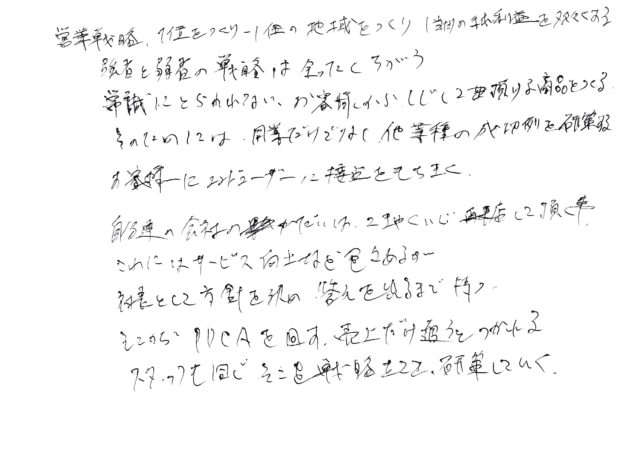 営業戦略、1位をつくり－1位の地域をつくり 1当りの純利益を
強者と弱者の戦略は全ったくちがう
常識にとらわれない、お客様から して頂ける商品をつくる
そのためには、同業だけでなく他業種の成功例を研究する
お客様に に接点をもちまく
自分達の会社の かだいは、 して頂く事
これにはサービス向上などを含めるが
社長として方針を決め 答えを出るまで待つ
そこからPDCAを回す、売上だけ追うとつかれる
スタッフも同じ そこを戦略立てて、研究していく